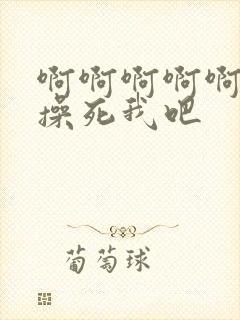 啊啊啊啊啊
操死我吧
葡萄球